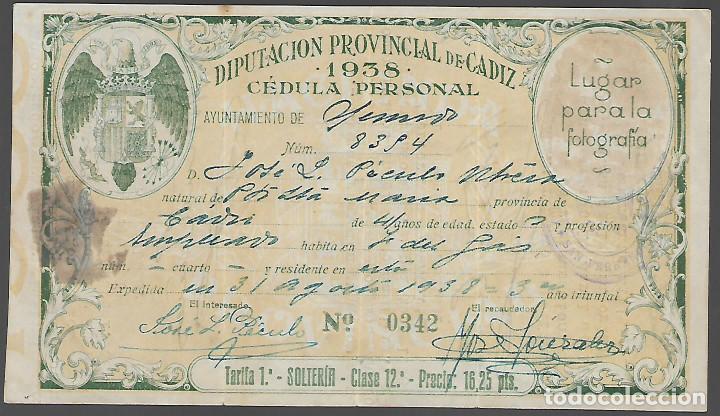 DIPUTACION PROVINCIAL DE CADIZ
·1938·
CÉDULA PERSONAL
Lugar
para la
fotografía
AYUNTAMIENTO DE
Núm. 8394
D. José L. Páculo
natural de Pto Sta María provincia de
Cadiz de 41 años de edad, estado y profesión
Empleado habita en del Gas
núm. — cuarto — y residente en esta
Expedida en 31 agosto 1938 = 3er año triunfal
El interesado El recaudador
José L. Páculo Nº 0342 José González
Tarifa 1.ª - SOLTERÍA - Clase 12.ª - Precio: 16,25 pts.
todocoleccion